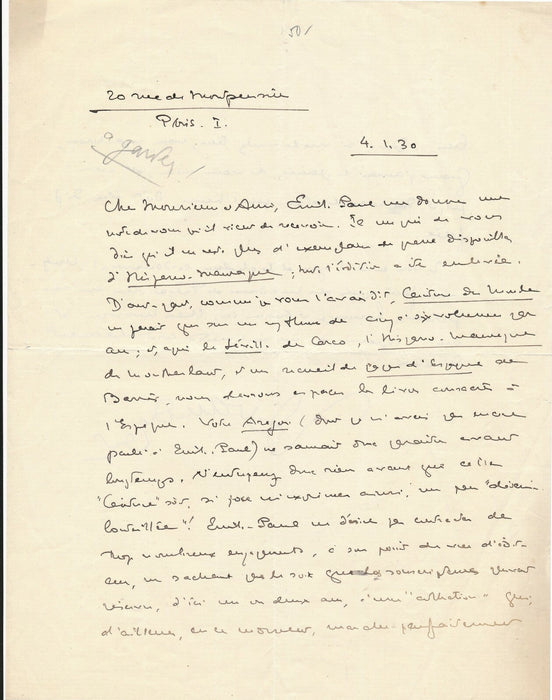 50/
20 rue de Montpensier
Paris. I.
à garder
4.1.30
Cher Monsieur et Ami, Émile-Paul me donne une
note de vous qu'il vient de recevoir. Je vous
dire qu'il ne reste plus d'exemplaire de presse disponible
d'Hispano-mauresque ; toute l'édition a été enlevée.
D'autre part, comme je vous l'avais dit, Ceinture du Monde
ne paraît que sur un rythme de cinq à six volumes par
an ; et, après le Séville de Carco, l'Hispano-mauresque
de Montherlant, et un recueil de pages d'Espagne de
Barrès, nous devons espacer les livres consacrés à
l'Espagne. Votre Aragon (dont je n'avais pas encore
parlé à Émile-Paul) ne saurait donc paraître avant
longtemps. N'entreprenez donc rien avant que cette
"Ceinture" soit, si j'ose m'exprimer ainsi, un peu "désem-
bouteillée"! Émile-Paul ne désire pas contracter de
trop nombreux engagements, à son point de vue d'édi-
teur, ne sachant pas le sort que les souscripteurs peuvent
réserver, d'ici un ou deux ans, à une "collection" qui,
d'ailleurs, en ce moment, marche parfaitement